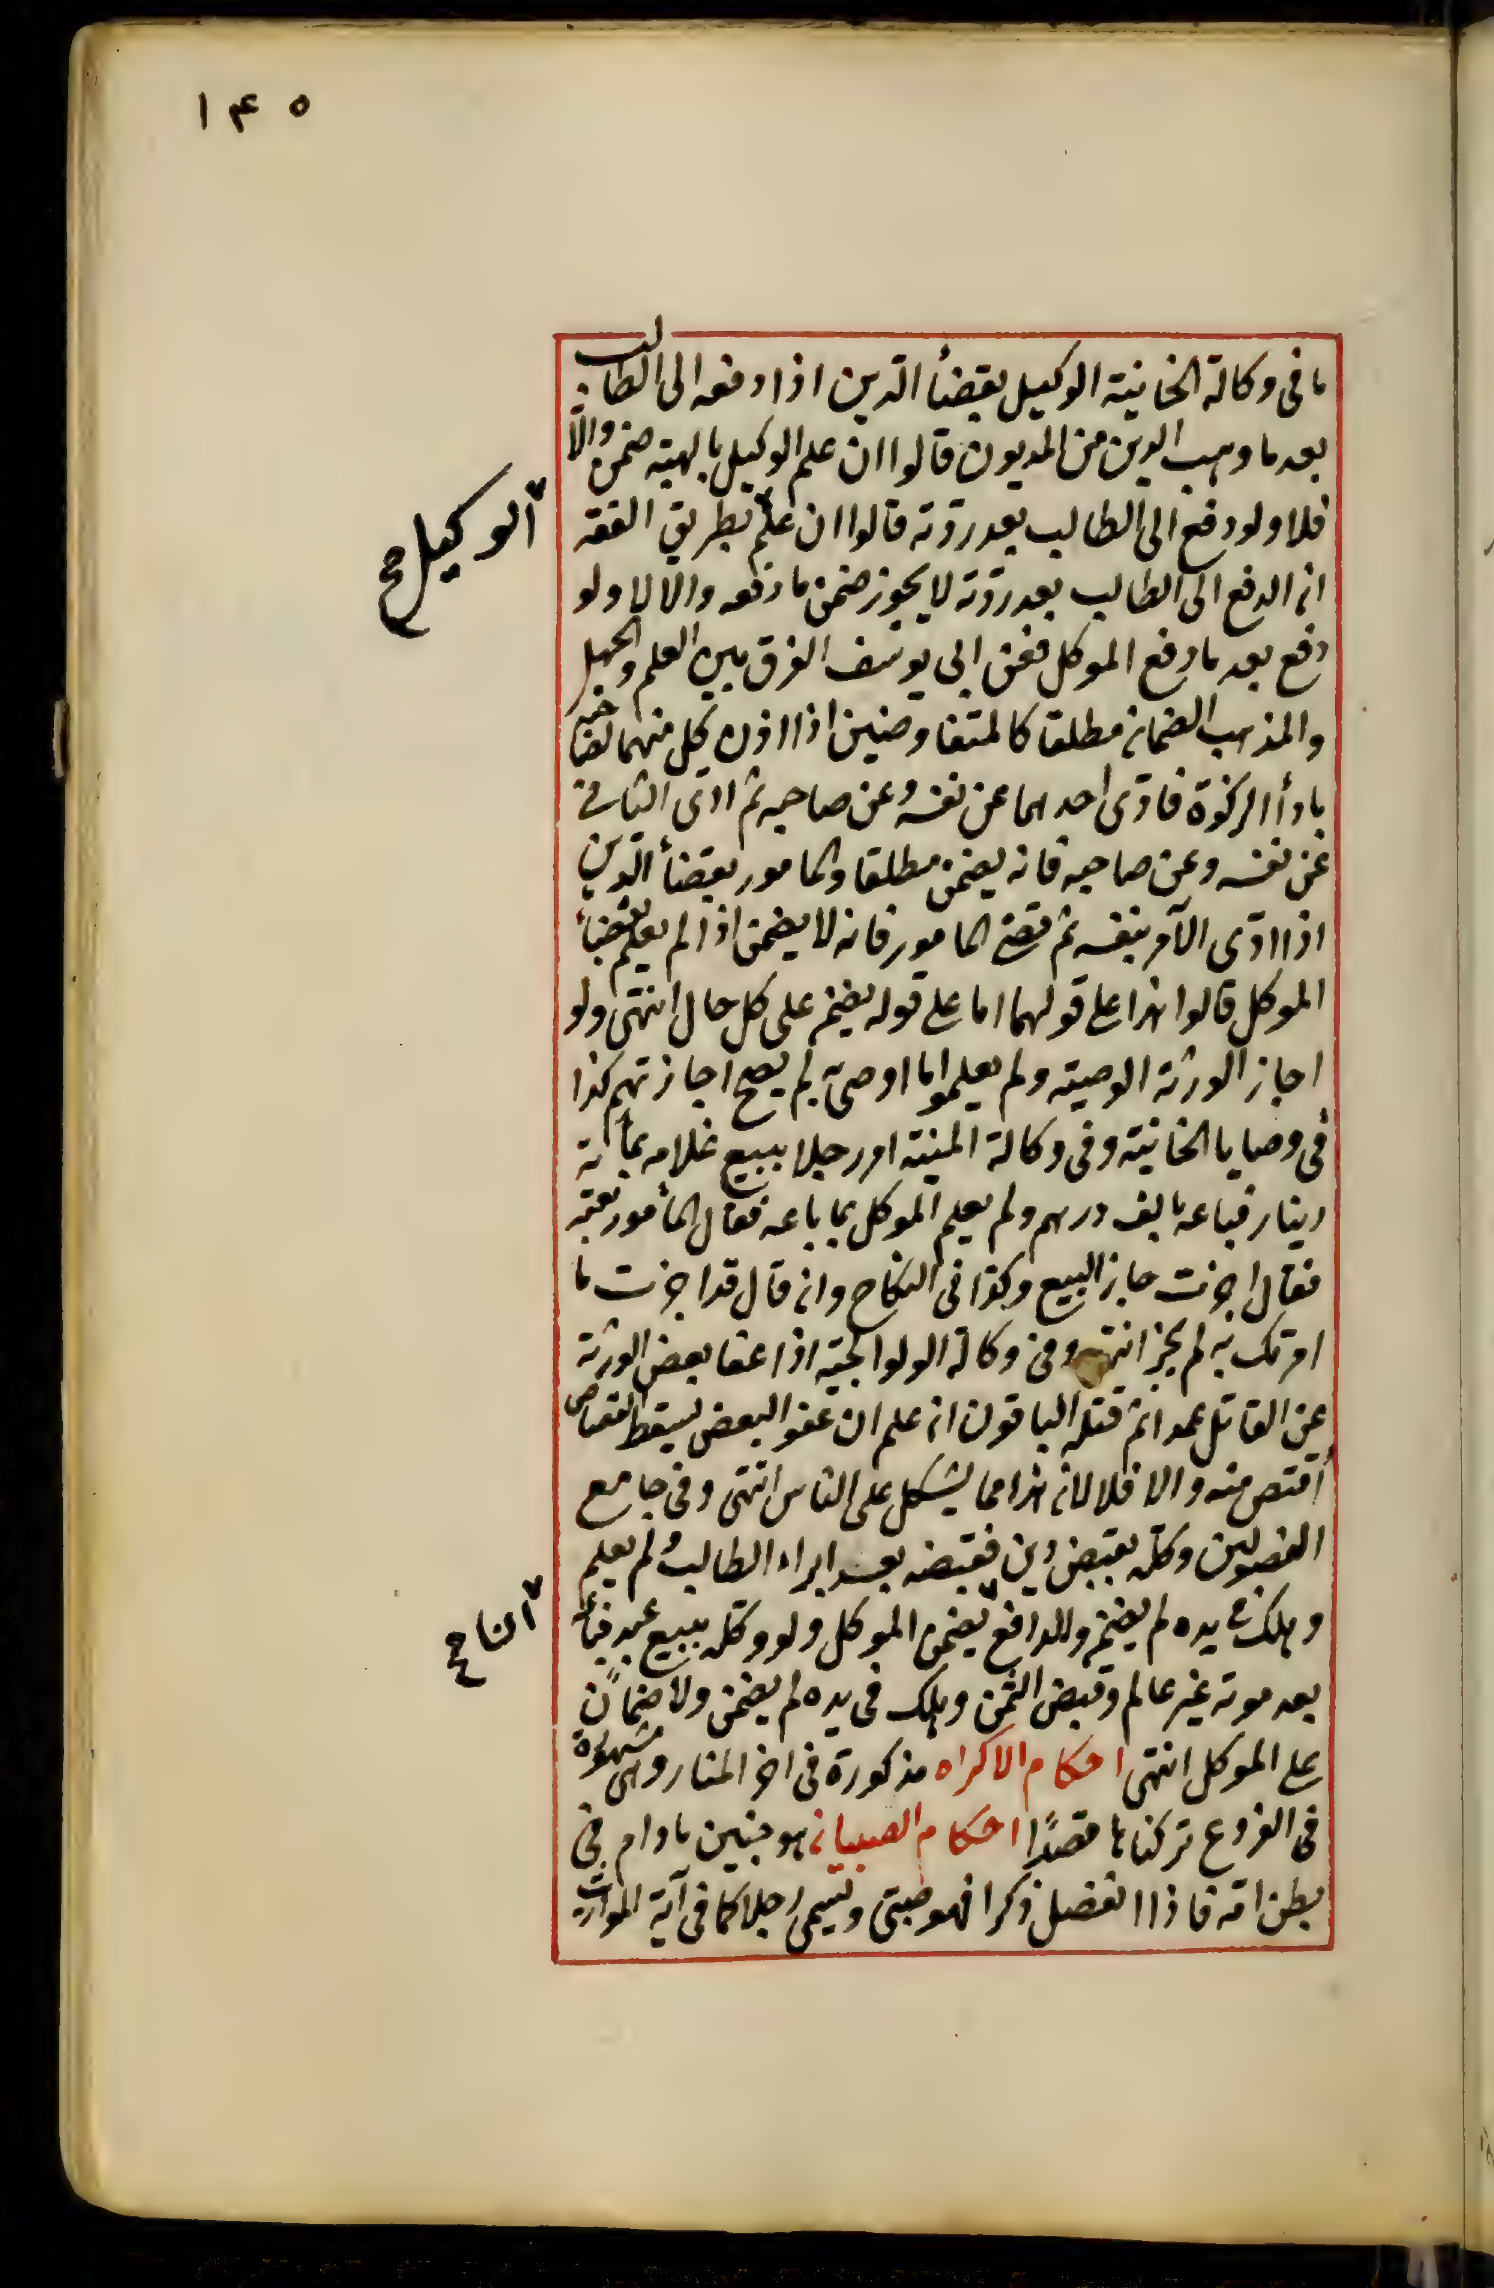 ۱۴۵
ما فى وكالة الخانية الوكيل بقضأ الدين اذا دفعه الى الطالب
بعد ما وهب الدين من المديون قالوا ان علم الوكيل بالهبة ضمن والّا
فلا ولو دفع الى الطالب بعد ردّته قالوا ان علم بطريق الفقه
الوكيل صح
ان الدفع الى الطالب بعد ردّته لا يجوز ضمن ما دفعه والا لا ولو
دفع بعد ما دفع الموكل فعن ابى يوسف الفرق بين العلم والجهل
والمذهب الضمان مطلقا كالمتفاوضين اذا اذن كل منهما لصاحبه
بادأ الزكوة فادّى احدهما عن نفسه وعن صاحبه ثم ادّى الثانى
عن نفسه وعن صاحبه فانه يضمن مطلقا والمامور بقضأ الدين
اذا ادّى الآمر بنفسه ثم قضى المامور فانه لا يضمن اذا لم يعلم بقضأ
الموكل قالوا هذا على قولهما اما على قوله يضمن على كل حال انتهى ولو
اجاز الورثة الوصية ولم يعلموا ما اوصى به لم يصح اجازتهم كذا
فى وصايا الخانية وفى وكالة المنية امر رجلا ببيع غلامه بمأية
دينار فباعه بالف درهم ولم يعلم الموكل بما باعه فقال المأمور بعته
فقال اجزت جاز البيع وكذا فى النكاح وان قال قد اجزت ما
امرتك به لم يجز انتهى وفى وكالة الولوالجية اذا عفا بعض الورثة
عن القاتل عمدا ثم قتله الباقون ان علم ان عفو البعض يسقط القصاص
أقتص منه والا فلا لان هذا مما يشكل على الناس انتهى وفى جامع
الفصولين وكله بقبض دين فقبضه بعد ابراء الطالب ولم يعلم
وهلك فى يده لم يضمن وللدافع يضمن الموكل ولو وكله ببيع عبد فبأعه
بعد موته غير عالم وقبض الثمن وهلك فى يده لم يضمن ولا ضمان
على الموكل انتهى احكام الاكراه مذكورة فى اخر المنار وهى مشهورة
فى الفروع تركناها قصدًا احكام الصبيان هو جنين ما دام فى
بطن امّه فاذا انفصل ذكرا فهو صبىّ ويسمى رجلا كما فى آية المواريث